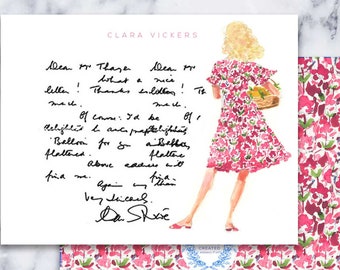 CLARA VICKERS
Dear Mr Thayer Dear Mr
What a nice
letter! Thanks letters! Th
much. much.
Of course I'd be Of I
delighted to autograph delighted
"Balloon for you a Balloon
flattered. flattere
Above address will
find me. find
Again my
Very Sincerely
CREATED